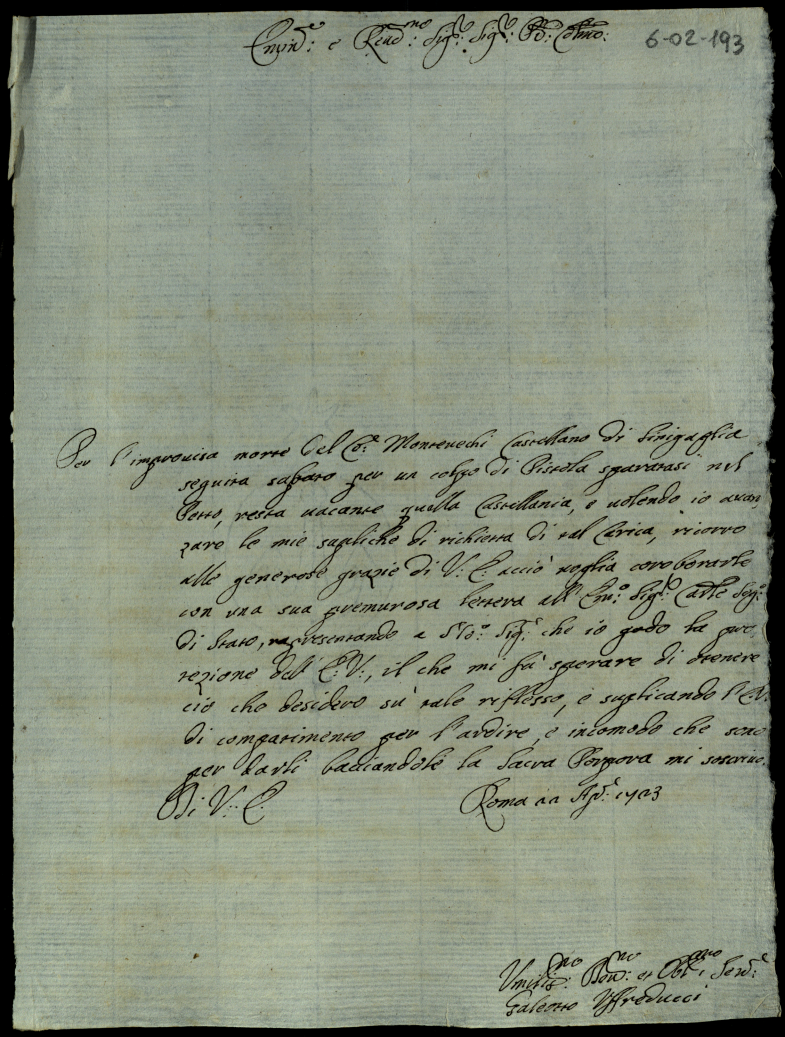 Emin.e e Reud.mo Sig.r Sig.r Pd: Colmo:
6-02-193
Per l'improuisa morte del Co: Monteuechi Castellano di Sinigaglia
seguita sabato per un colpo di Pistola sparatasi nel
Petto, resta uacante quella Castellania, e uolendo io auan,
zare le mie supliche di richiesta di tal Carica, ricorro
alle generose grazie di V: E: acciò uoglia coroborarle
con una sua premurosa lettera all' Em:o Sig:r Carle Seg:o
di Stato, rapresentando a S: Sig: che io godo la pro,
tezione dell' E: V:, il che mi fà sperare di otenere
ciò che desidero sù tale riflesso, e suplicando l'E:V:
di compatimento per l'ardire, e incomodo che sono
per darli baciandole la Sacra Porpora mi soscriuo
Di V: E: Roma 22 Ap: 1723
Umiliss:mo Deu:mo et Obl:mo Seru:e
Galeotto Vffreducci